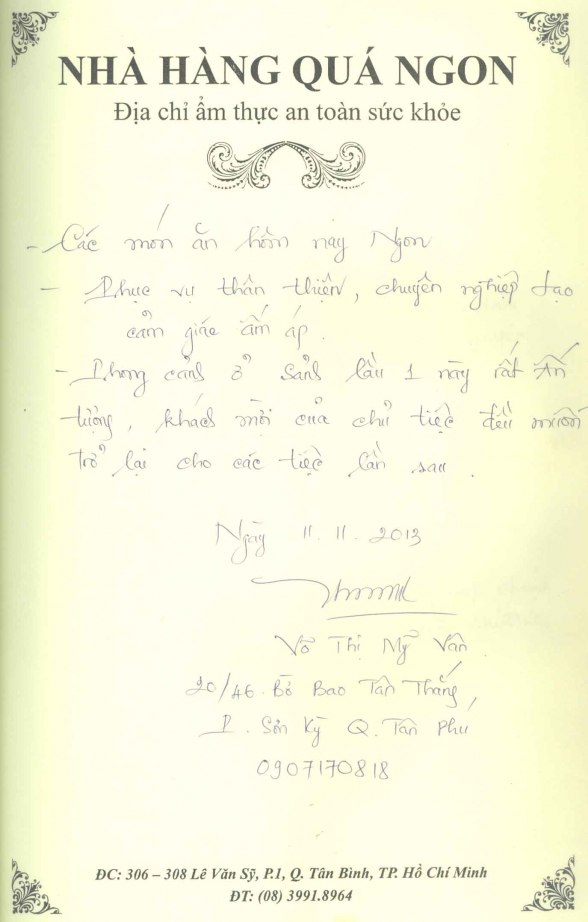 NHÀ HÀNG QUÁ NGON
Địa chỉ ẩm thực an toàn sức khỏe
- Các món ăn hôm nay Ngon
- Phục vụ thân thiện, chuyên nghiệp tạo
cảm giác ấm áp.
- Phong cảnh ở sảnh lầu 1 này rất Ấn
tượng, khách mời của chủ tiệc đều muốn
trở lại cho các tiệc lần sau.
Ngày 11.11.2013
Võ Thị Mỹ Vân
20/46 Bờ Bao Tân Thắng,
P. Sơn Kỳ Q. Tân Phú
0907170818
ĐC: 306 – 308 Lê Văn Sỹ, P.1, Q. Tân Bình, TP. Hồ Chí Minh
ĐT: (08) 3991.8964